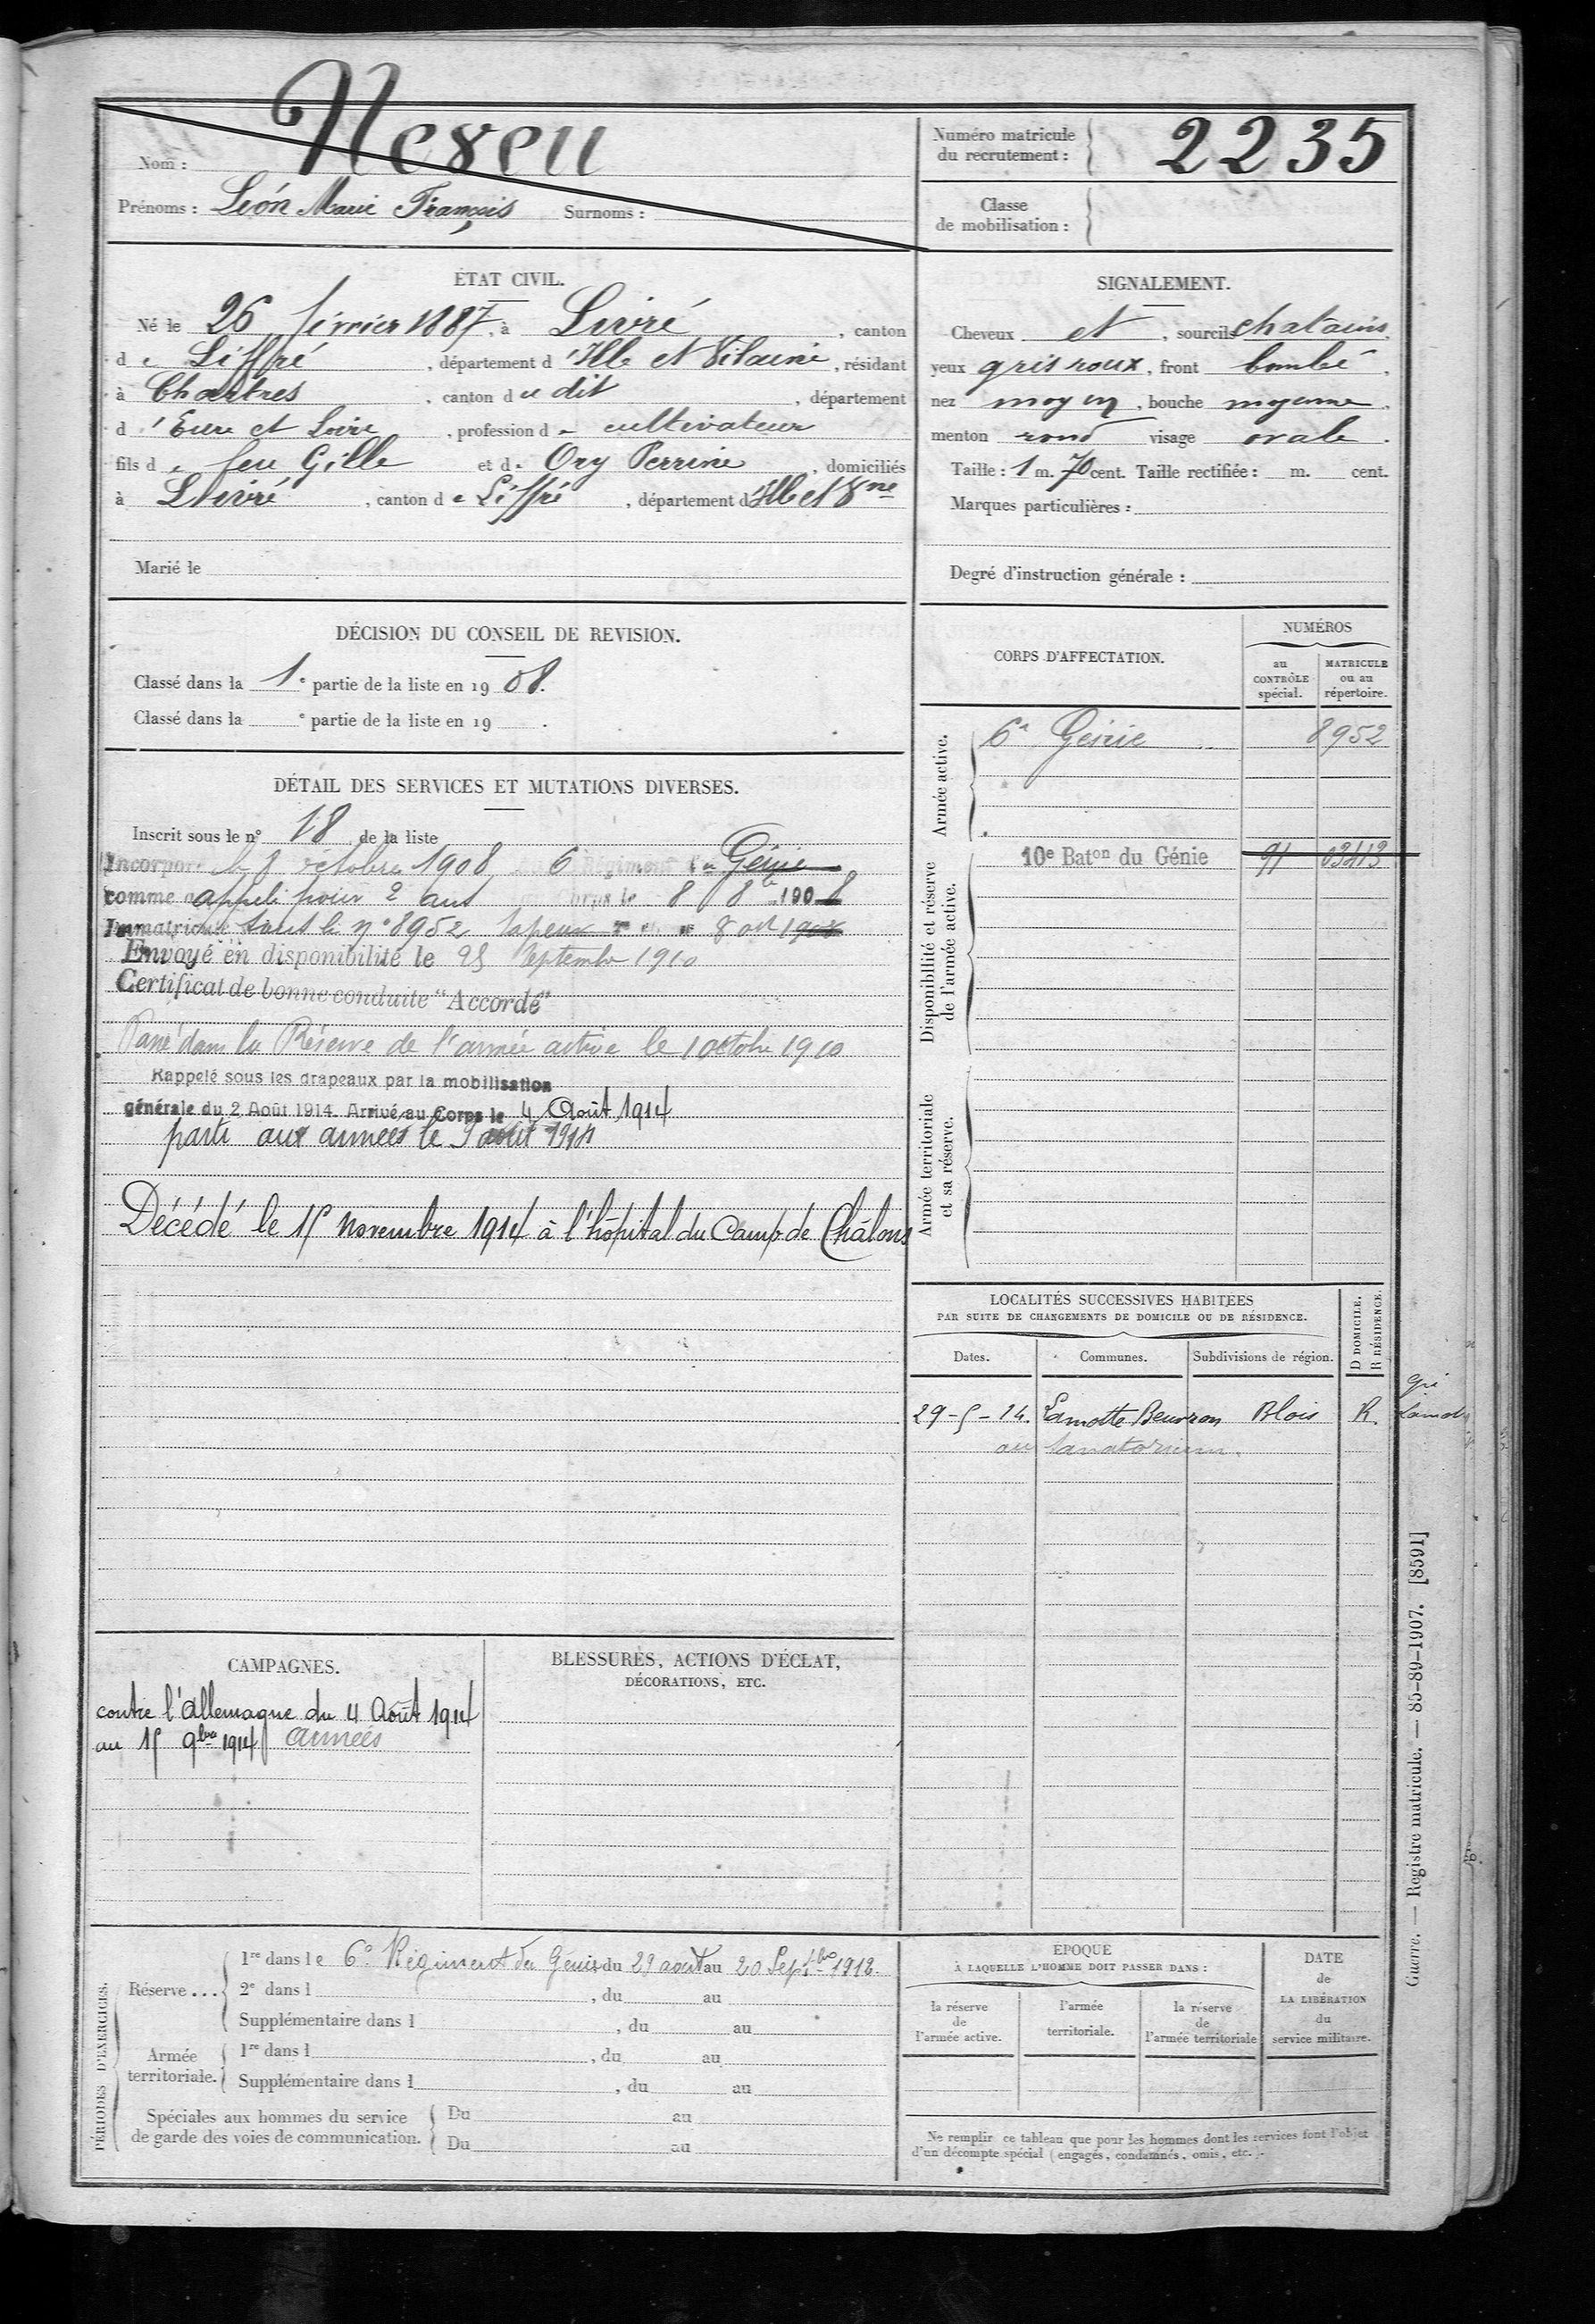 Nom : Neveu
Prénoms : Léon Marie François Surnoms :
Numéro matricule
du recrutement : 2235
Classe
de mobilisation :
ÉTAT CIVIL.
Né le 26 février 1887, à Livré, canton
de Liffré, département d'Ille et Vilaine, résidant
à Chartres, canton du dit, département
d'Eure et Loire, profession de cultivateur
fils de feu Gille et de Ory Perrine, domiciliés
à Livré, canton de Liffré, département d'Ille et Vne
Marié le
SIGNALEMENT.
Cheveux et, sourcils chatains,
yeux gris roux, front bombé,
nez moyen, bouche moyenne,
menton rond visage ovale.
Taille : 1 m. 70 cent. Taille rectifiée : m. cent.
Marques particulières :
Degré d'instruction générale :
DÉCISION DU CONSEIL DE REVISION.
Classé dans la 1e partie de la liste en 1908.
Classé dans la e partie de la liste en 19 .
DÉTAIL DES SERVICES ET MUTATIONS DIVERSES.
Inscrit sous le n° 18 de la liste
Incorporé le 8 octobre 1908 6 Régiment du Génie
comme appelé pour 2 ans Corps le 8 8bre 1908
Immatriculé sous le n° 8952 sapeur 8 oct 1908
Envoyé en disponibilité le 25 Septembre 1910
Certificat de bonne conduite "Accordé"
Passé dans la Réserve de l'armée active le 1 octobre 1910
Rappelé sous les drapeaux par la mobilisation
générale du 2 Août 1914. Arrivé au Corps le 4 Août 1914
parti aux armées le 9 août 1914
Décédé le 15 Novembre 1914 à l'hôpital du Camp de Châlons
CORPS D'AFFECTATION.
NUMÉROS
au
CONTRÔLE
spécial.
MATRICULE
ou au
répertoire.
Armée active.
6e Génie 8952
Disponibilité et réserve
de l'armée active.
10e Baton du Génie 91 03413
Armée territoriale
et sa réserve.
LOCALITÉS SUCCESSIVES HABITÉES
PAR SUITE DE CHANGEMENTS DE DOMICILE OU DE RÉSIDENCE.
D DOMICILE.
R RÉSIDENCE.
Dates. Communes. Subdivisions de région.
29-5-14. Lamotte Beuvron Blois R.
au sanatorium.
CAMPAGNES.
contre l'Allemagne du 4 Août 1914
au 15 9bre 1914 Armées
BLESSURES, ACTIONS D'ÉCLAT,
DÉCORATIONS, ETC.
PÉRIODES D'EXERCICES.
Réserve ...
1re dans le 6e Régiment du Génie du 29 août au 20 Septbre 1912.
2e dans l , du au
Supplémentaire dans l , du au
Armée
territoriale.
1re dans l , du au
Supplémentaire dans l , du au
Spéciales aux hommes du service
de garde des voies de communication.
Du au
Du au
EPOQUE
À LAQUELLE L'HOMME DOIT PASSER DANS :
la réserve
de
l'armée active.
l'armée
territoriale.
la réserve
de
l'armée territoriale
DATE
de
LA LIBÉRATION
du
service militaire.
Ne remplir ce tableau que pour les hommes dont les services font l'objet
d'un décompte spécial (engagés, condamnés, omis, etc.).
Guerre. — Registre matricule. — 85-89-1907. [8591]